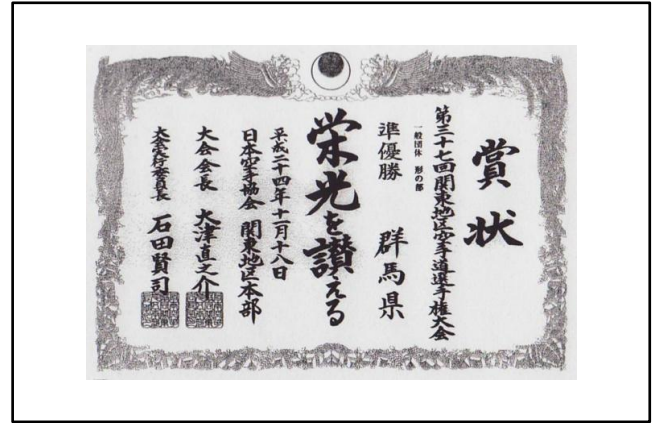 賞状
第三十七回関東地区空手道選手権大会
一般団体 形の部
準優勝 群馬県
栄光を讃える
平成二十四年十一月十八日
日本空手協会 関東地区本部
大会会長 大津直之介
大会実行委員長 石田賢司